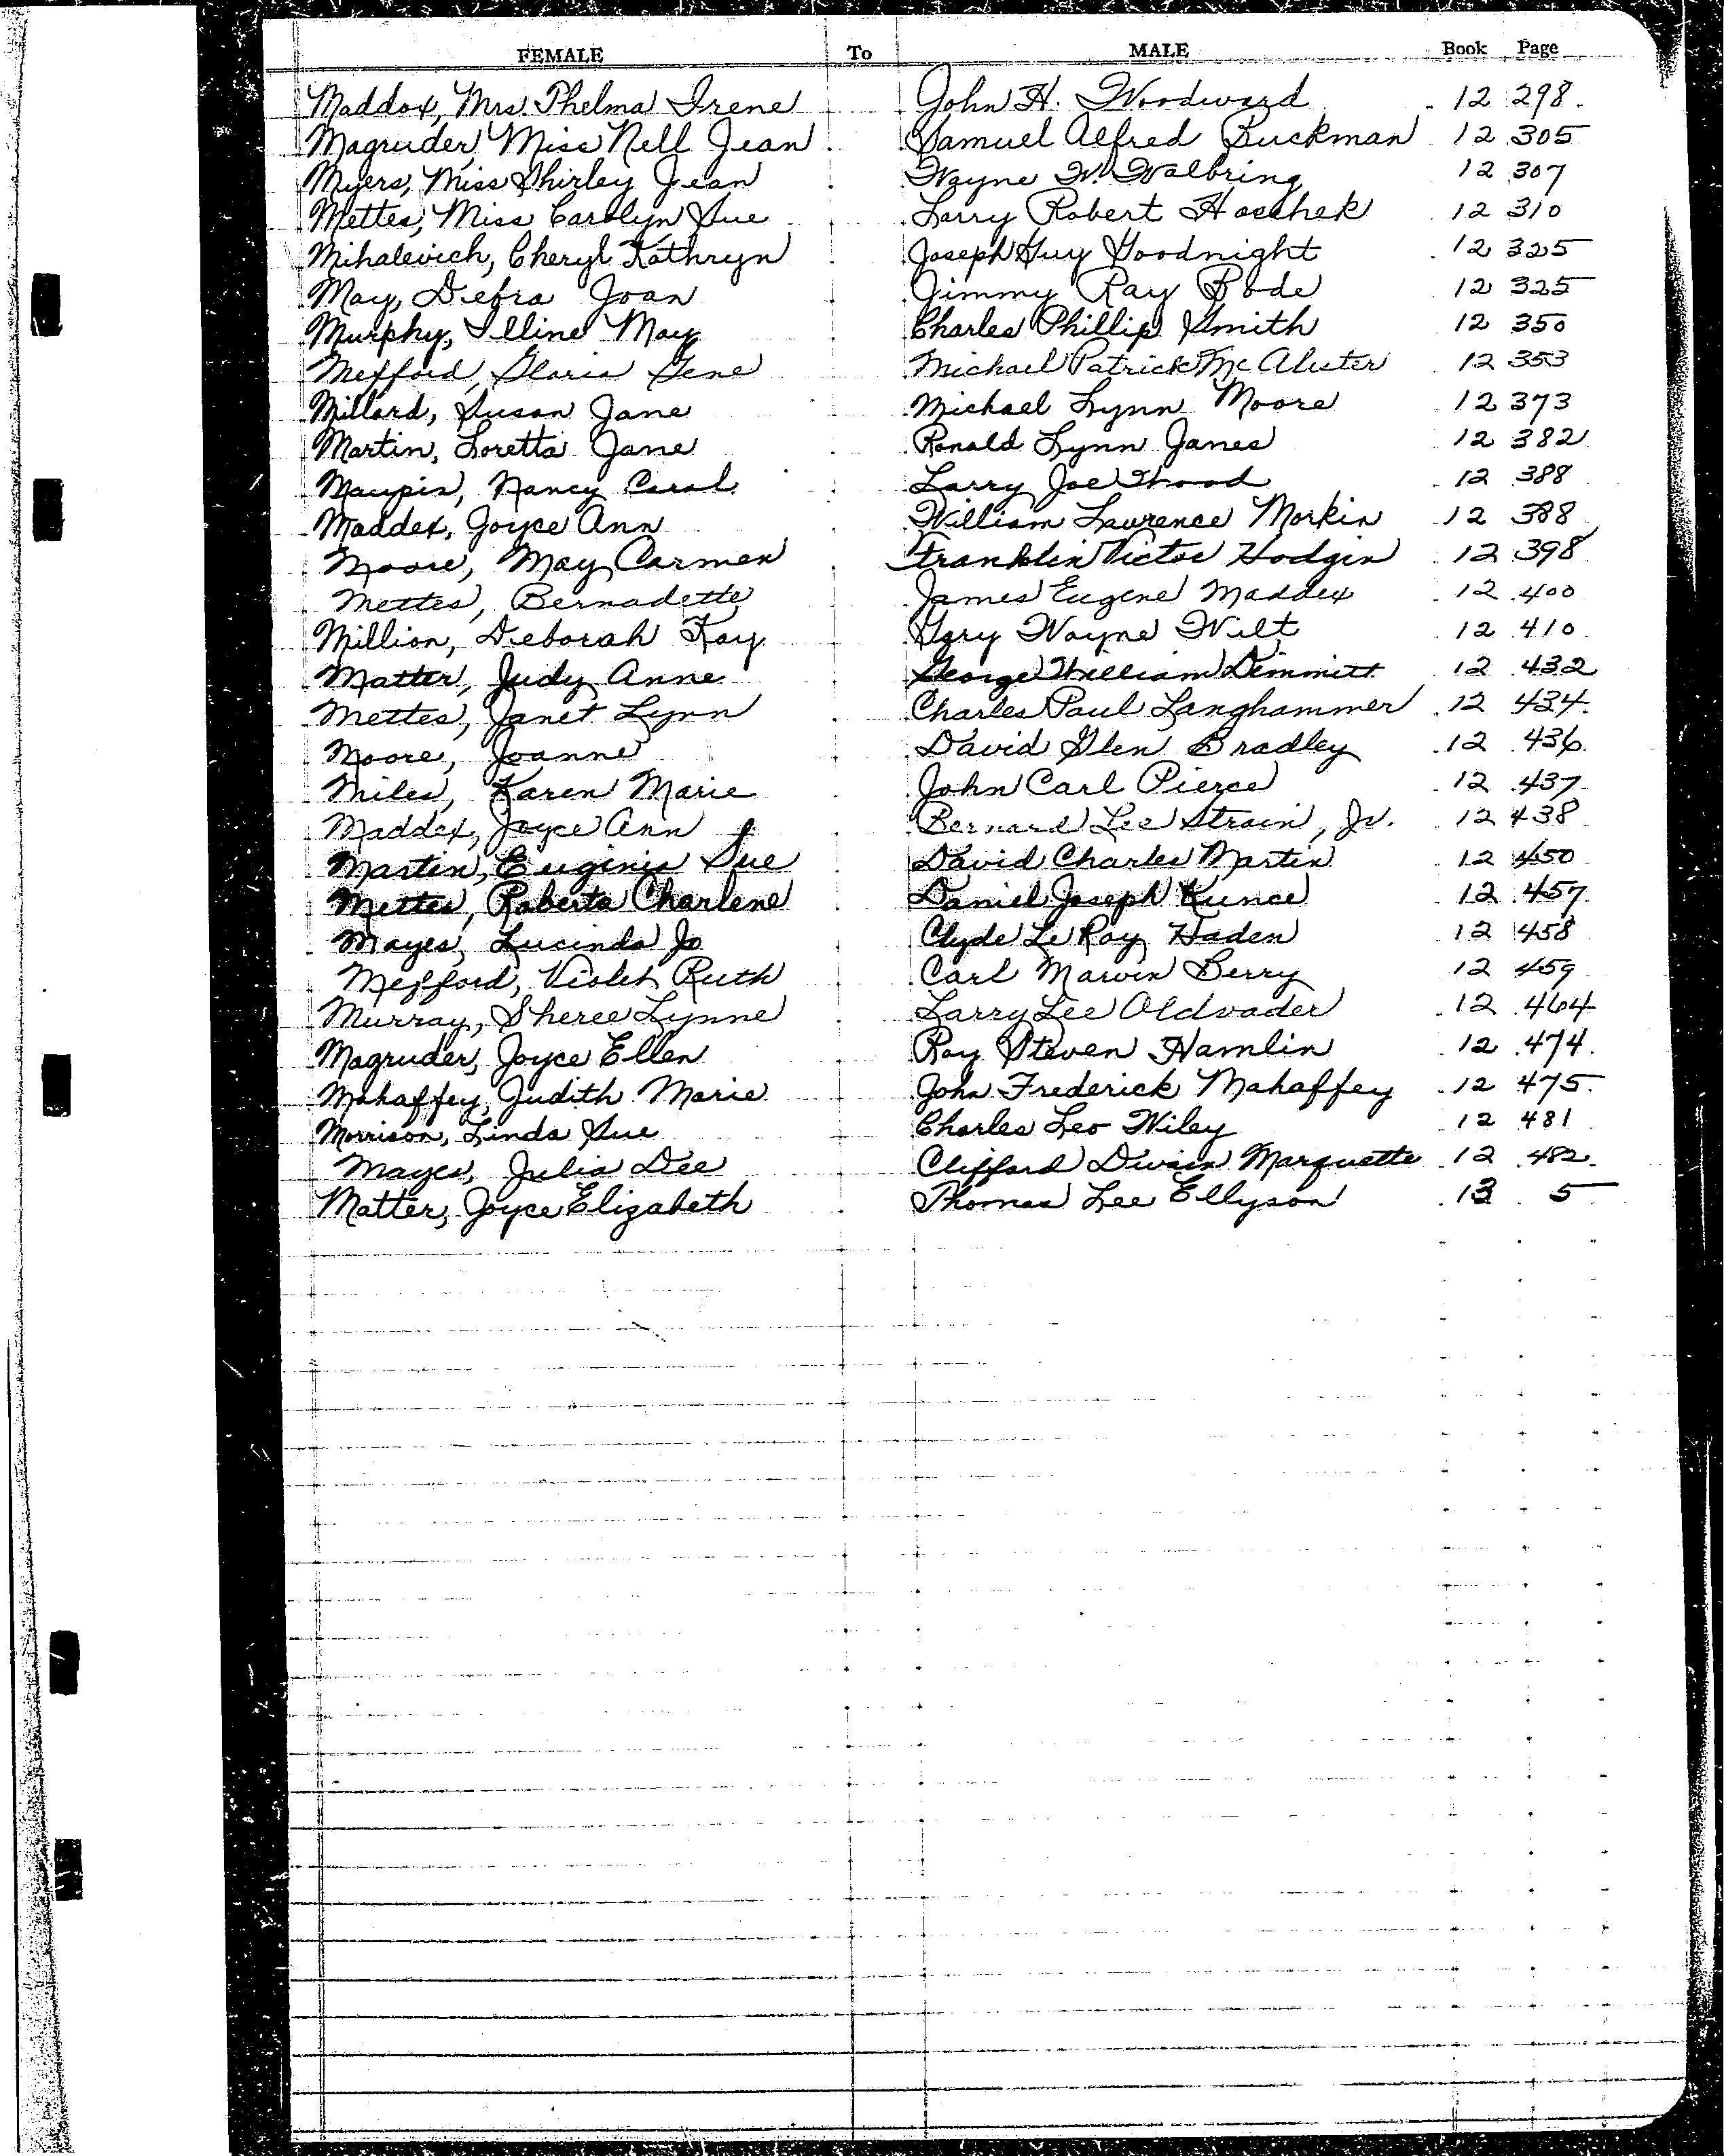 FEMALE To MALE Book Page
Maddox, Mrs. Thelma Irene John H. Woodward 12 298
Magruder, Miss Nell Jean Samuel Alfred Buckman 12 305
Myers, Miss Shirley Jean Wayne W. Walbring 12 307
Mettes, Miss Carolyn Sue Larry Robert Haschek 12 310
Mihalevich, Cheryl Kathryn Joseph Guy Goodnight 12 325
May, Debra Joan Jimmy Ray Bode 12 325
Murphy, Illine May Charles Phillip Smith 12 350
Mefford, Gloria Gene Michael Patrick McAluster 12 353
Millard, Susan Jane Michael Lynn Moore 12 373
Martin, Loretta Jane Ronald Lynn Janes 12 382
Maupin, Nancy Carol Larry Joe Thood 12 388
Maddex, Joyce Ann William Lawrence Morkin 12 388
Moore, May Carmen Franklin Victor Hodgin 12 398
Mettes, Bernadette James Eugene Maddex 12 400
Million, Deborah Kay Gary Wayne Wilt 12 410
Matter, Judy Anne George William Dimmitt 12 432
Mettes, Janet Lynn Charles Paul Langhammer 12 434
Moore, Joanne David Glen Bradley 12 436
Miles, Karen Marie John Carl Pierce 12 437
Maddex, Joyce Ann Bernard Lee Strain, Jr. 12 438
Martin, Euginia Sue David Charles Martin 12 450
Mettes, Roberta Charlene Daniel Joseph Kunce 12 457
Mayes, Lucinda Jo Clyde Le Roy Haden 12 458
Mefford, Violet Ruth Carl Marvin Berry 12 459
Murray, Sheree Lynne Larry Lee Oldvader 12 464
Magruder, Joyce Ellen Roy Steven Hamlin 12 474
Mahaffey, Judith Marie John Frederick Mahaffey 12 475
Morrison, Linda Sue Charles Leo Wiley 12 481
Mayes, Julia Dee Clifford Dwain Marquette 12 482
Matter, Joyce Elizabeth Thomas Lee Ellyson 13 5